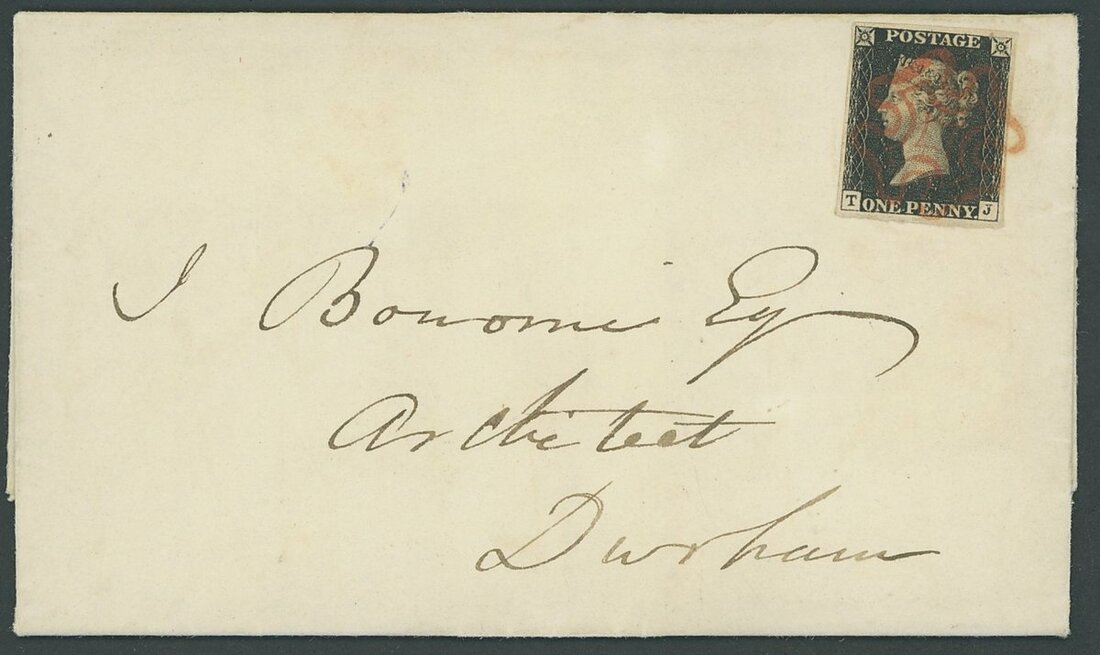 POSTAGE
T ONE PENNY. J
I Bonomi Esq
Architect
Durham